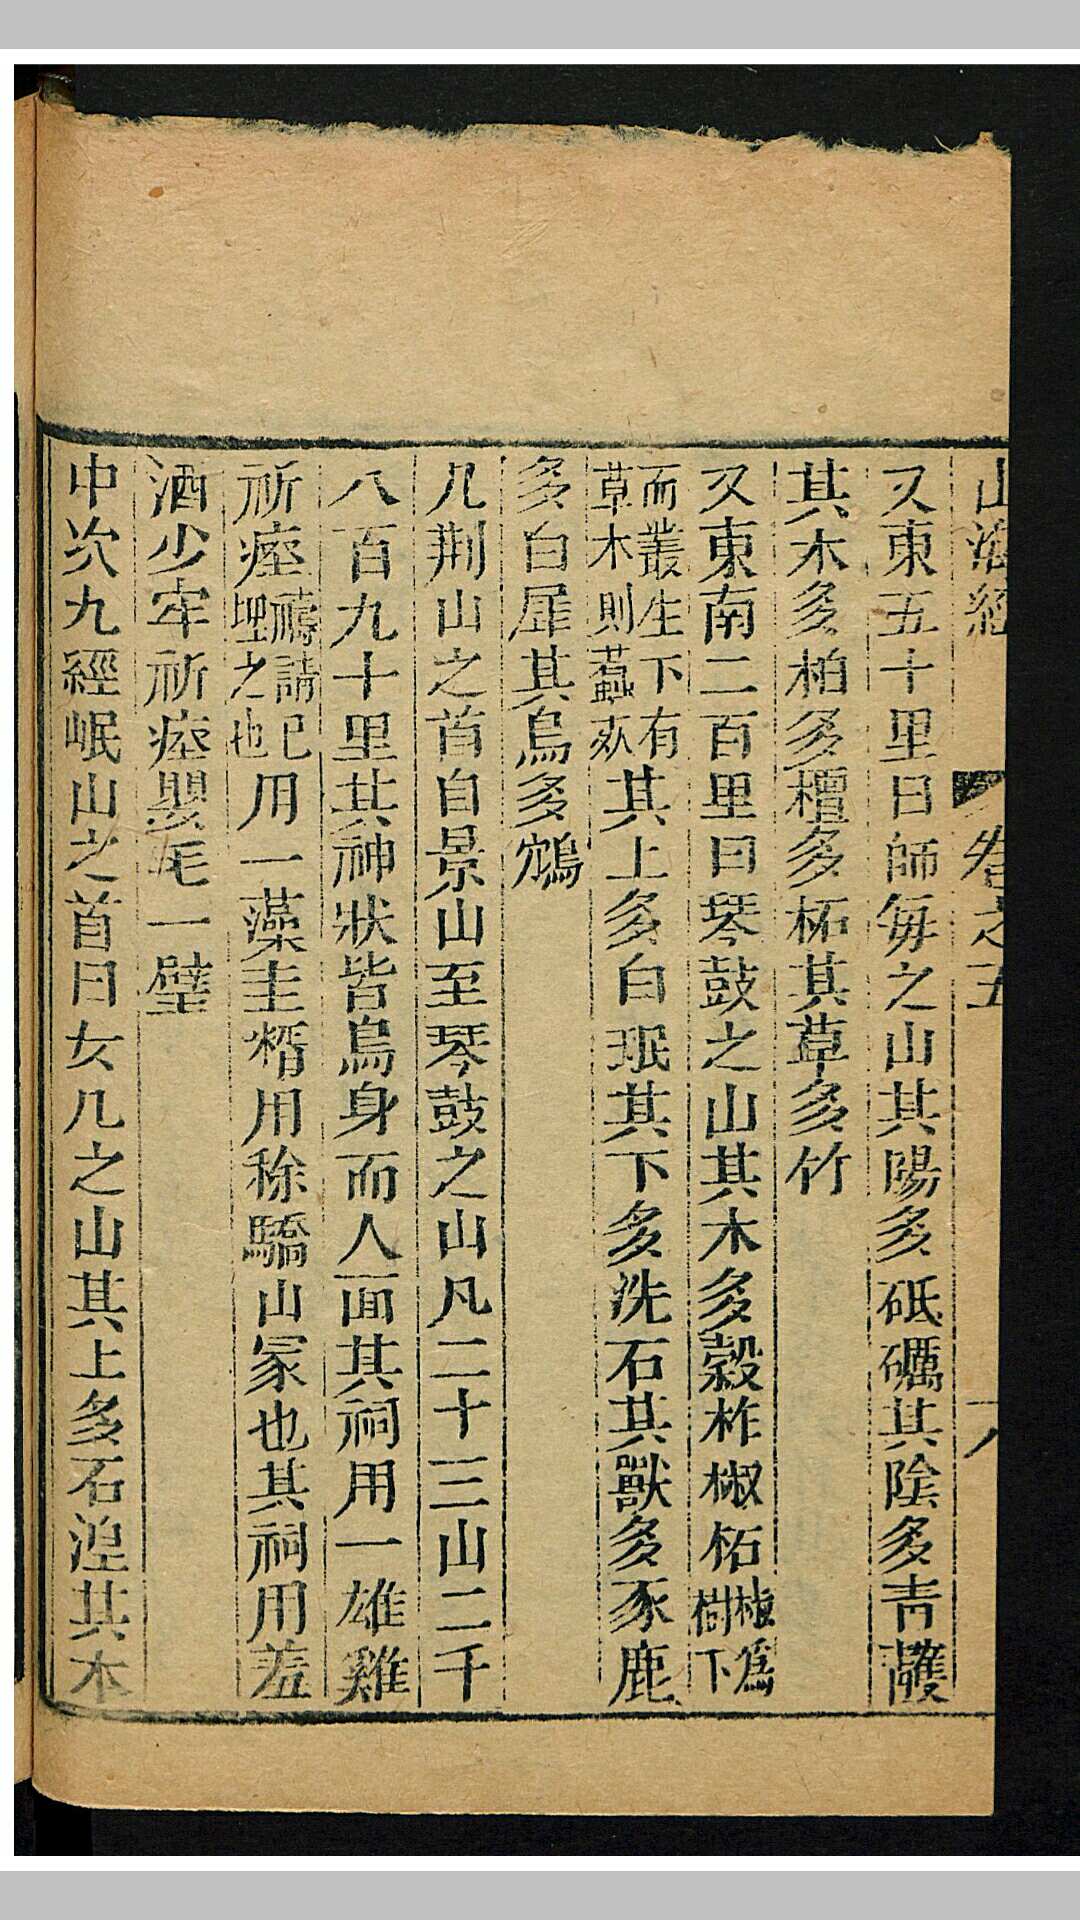 山海經 卷之五 十八
又東五十里曰師每之山其陽多砥礪其陰多青雘
其木多柏多檀多柘其草多竹
又東南二百里曰琴鼓之山其木多榖柞椒柘椒為樹下
而叢生下有草木則蠚㱽其上多白珉其下多洗石其獸多豕鹿
多白犀其鳥多鴆
凡荆山之首自景山至琴鼓之山凡二十三山二千
八百九十里其神狀皆鳥身而人面其祠用一雄雞
祈瘞禱請已埋之也用一藻圭糈用稌驕山冢也其祠用羞
酒少牢祈瘞嬰毛一璧
中次九經岷山之首曰女几之山其上多石湟其木